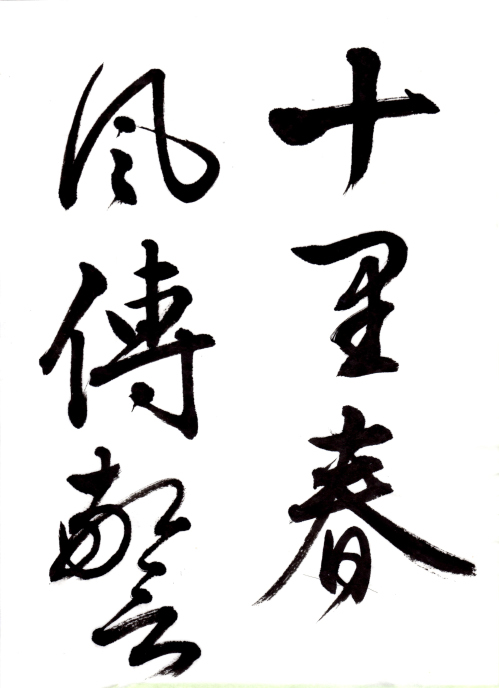 十里春
風傳警